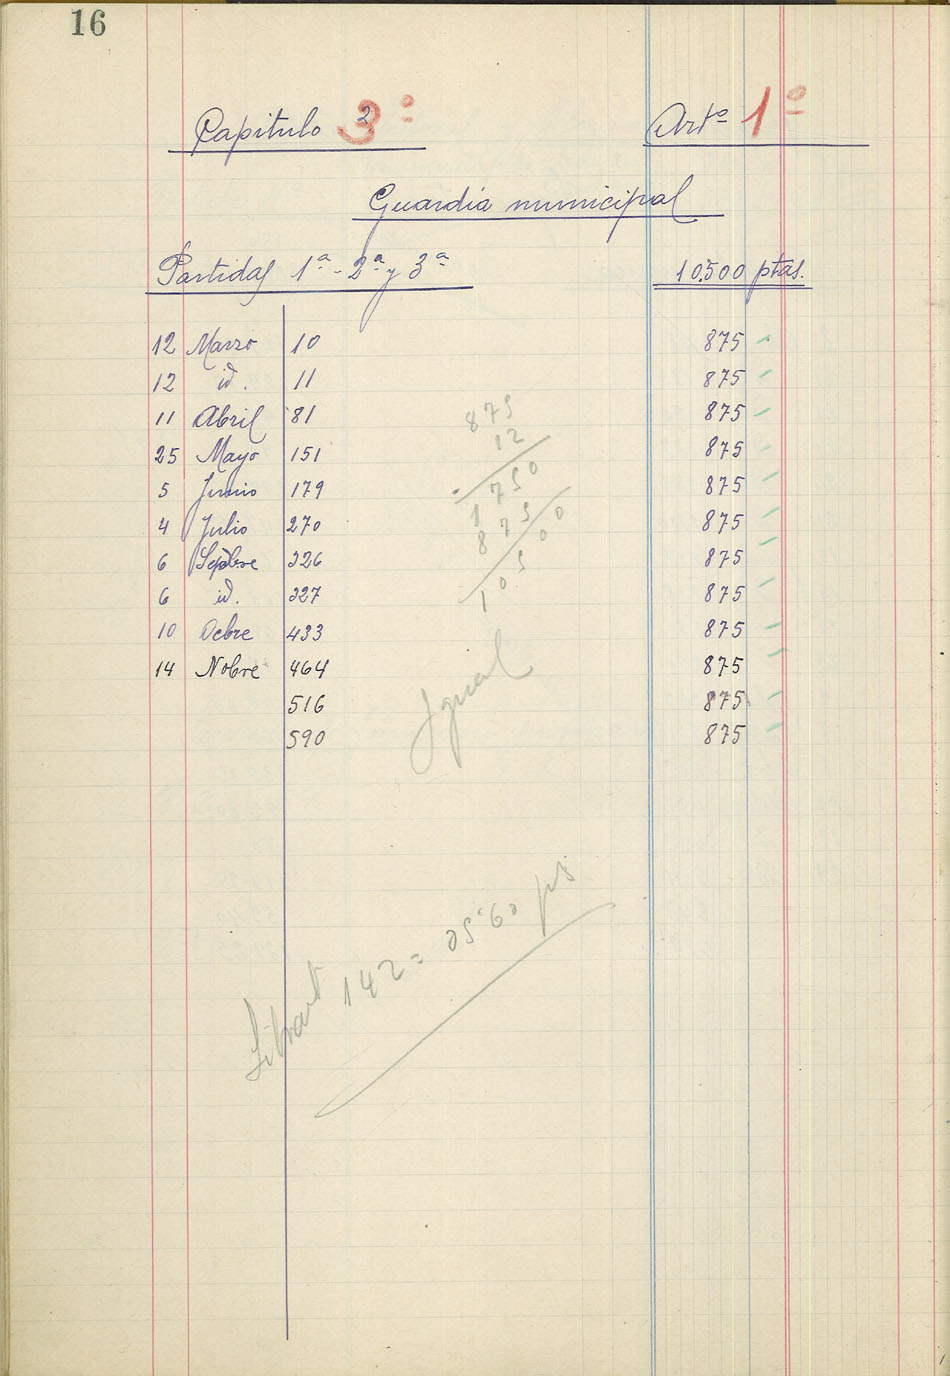 16
Capitulo 3º Artº 1º
Guardia municipal
Partidas 1ª - 2ª y 3ª 10.500 ptas.
12 Marzo 10 875
12 id. 11 875
11 Abril 81 875
25 Mayo 151 875
5 Junio 179 875
4 Julio 270 875
6 Sepbre 326 875
6 id. 327 875
10 Ocbre 433 875
14 Nobre 464 875
516 875
590 875
875
12
1750
875
10500
Igual
142 =